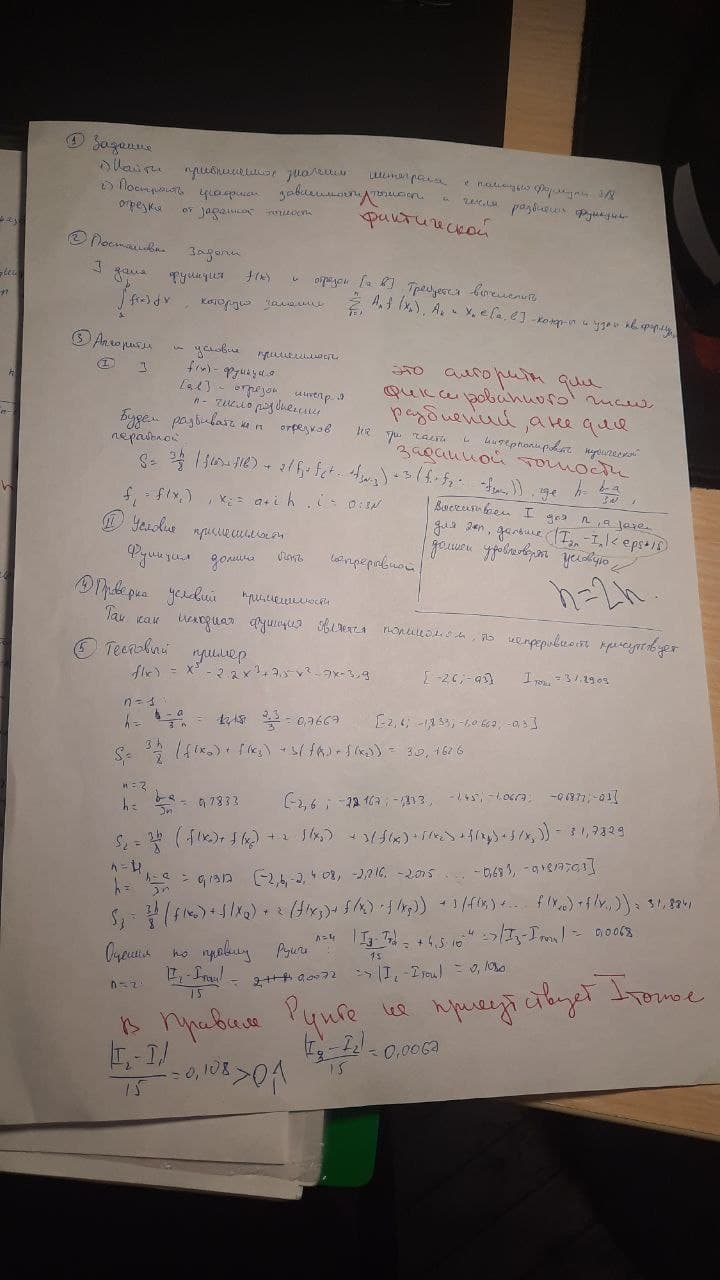 ① Задание
1) Найти приближенное значение интеграла с помощью формулы 3/8
2) Построить графики зависимости точности и числа разбиений функции
фактической
отрезка от заданной точности
② Постановка задачи
] дана функция f(x) и отрезок [a, b]. Требуется вычислить
∫ f(x)dx, которую заменим Σ Aₖ f(xₖ), Aₖ и xₖ ∈ [a, b] - коэф-ы и узлы кв. формулы
③ Алгоритм и условие применимости
Ⅰ ] f(x) - функция
[a, b] - отрезок интегр-я
n - число разбиений
это алгоритм для
фиксированного число
разбиений, а не для
заданной точности
Будем разбивать n отрезков на три части и интерполировать кубической
параболой.
S = 3h/8 (f(a)+f(b) + 2(f₃+f₆+...f₃ₙ₋₃) + 3(f₁+f₂...f₃ₙ₋₁)), где h = b-a/3n,
fᵢ = f(xᵢ), xᵢ = a + i h, i = 0:3N
Высчитываем I для n, а затем
для 2n, дальше |I₂ₙ - Iₙ| < eps*15
должен удовлетворять условию
n=2n.
Ⅱ Условие применимости
Функция должна быть непрерывной
④ Проверка условий применимости
Так как исходная функция является полиномом, то непрерывность присутствует
⑤ Тестовый пример
f(x) = x⁵ - 2.2x³ + 7,5x² - 7x - 3,9 [-2.6; -0.3] Iточ = 31,8909
n=1:
h = b-a/3n = 2,3/3 = 0,7667 [-2,6; -1,833; -1,0667; -0,3]
S₁ = 3h/8 (f(x₀) + f(x₃) + 3(f(x₁) + f(x₂)) = 30,1626
n=2
h = b-a/3n = 0,3833 [-2,6; -2,2167; -1,833, -1.45; -1.0667; -0,6833; -0.3]
S₂ = 3h/8 (f(x₀) + f(x₆) + 2 f(x₃) + 3(f(x₁) + f(x₂) + f(x₄) + f(x₅)) = 31,7829
n=4
h = b-a/3n = 0,1917 [-2,6, -2,408, -2,216, -2.025 ... -0,683, -0,4917; -0,3]
S₃ = 3h/8 (f(x₀) + f(x₁₂) + 2(f(x₃) + f(x₆) + f(x₉)) + 3(f(x₁) + ... f(x₁₀) + f(x₁₁)) = 31,8841
Оценим по правилу Рунге: n=4 |I₃ - Iточ|/15 = 4,5·10⁻⁴ => |I₃ - Iточн| = 0,0068
n=2: |I₂ - Iточн|/15 = 0,0072 => |I₂ - Iточн| = 0,1080
В Правиле Рунге не присутствует I точное
|I₂ - I₁|/15 = 0,108 > 0,1 |I₃ - I₂|/15 = 0,0067